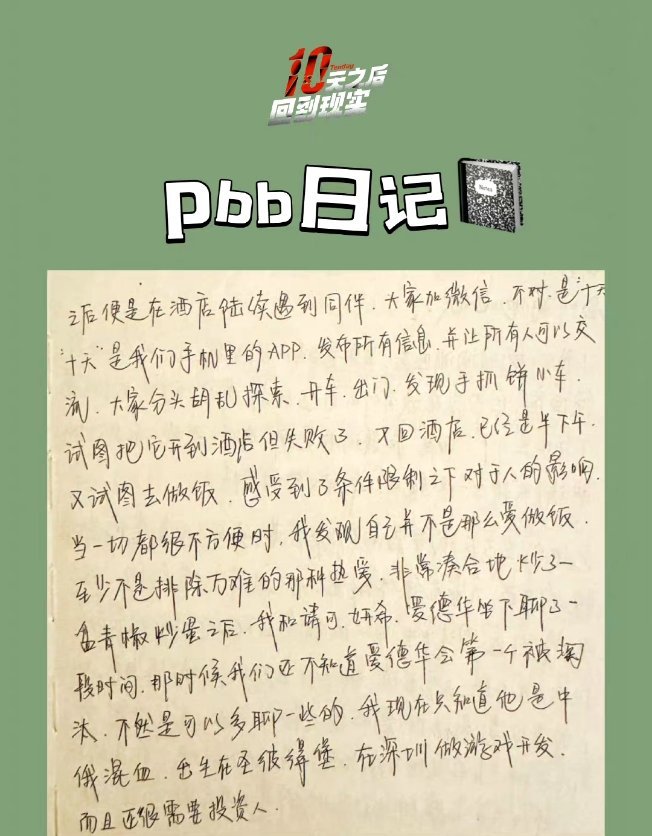 10天之后
Tenday
回到现实
pbb日记
Notes
之后便是在酒店陆续遇到同伴.大家加微信.不对.是“十天
“十天”是我们手机里的APP.发布所有信息.并让所有人可以交
流.大家分头胡乱探索.开车.出门.发现手抓饼小车.
试图把它开到酒店但失败了.又回酒店.已经是半下午.
又试图去做饭.感受到了条件限制之下对于人的影响.
当一切都很不方便时,我发现自己并不是那么爱做饭.
至少不是排除万难的那种热爱.非常凑合地炒了一
盘青椒炒蛋之后.我和靖可.妍希.爱德华坐下聊了一
段时间.那时候我们还不知道爱德华会第一个被淘
汰.不然是可以多聊一些的.我现在只知道他是中
俄混血.出生在圣彼得堡.在深圳做游戏开发.
而且还很需要投资人.